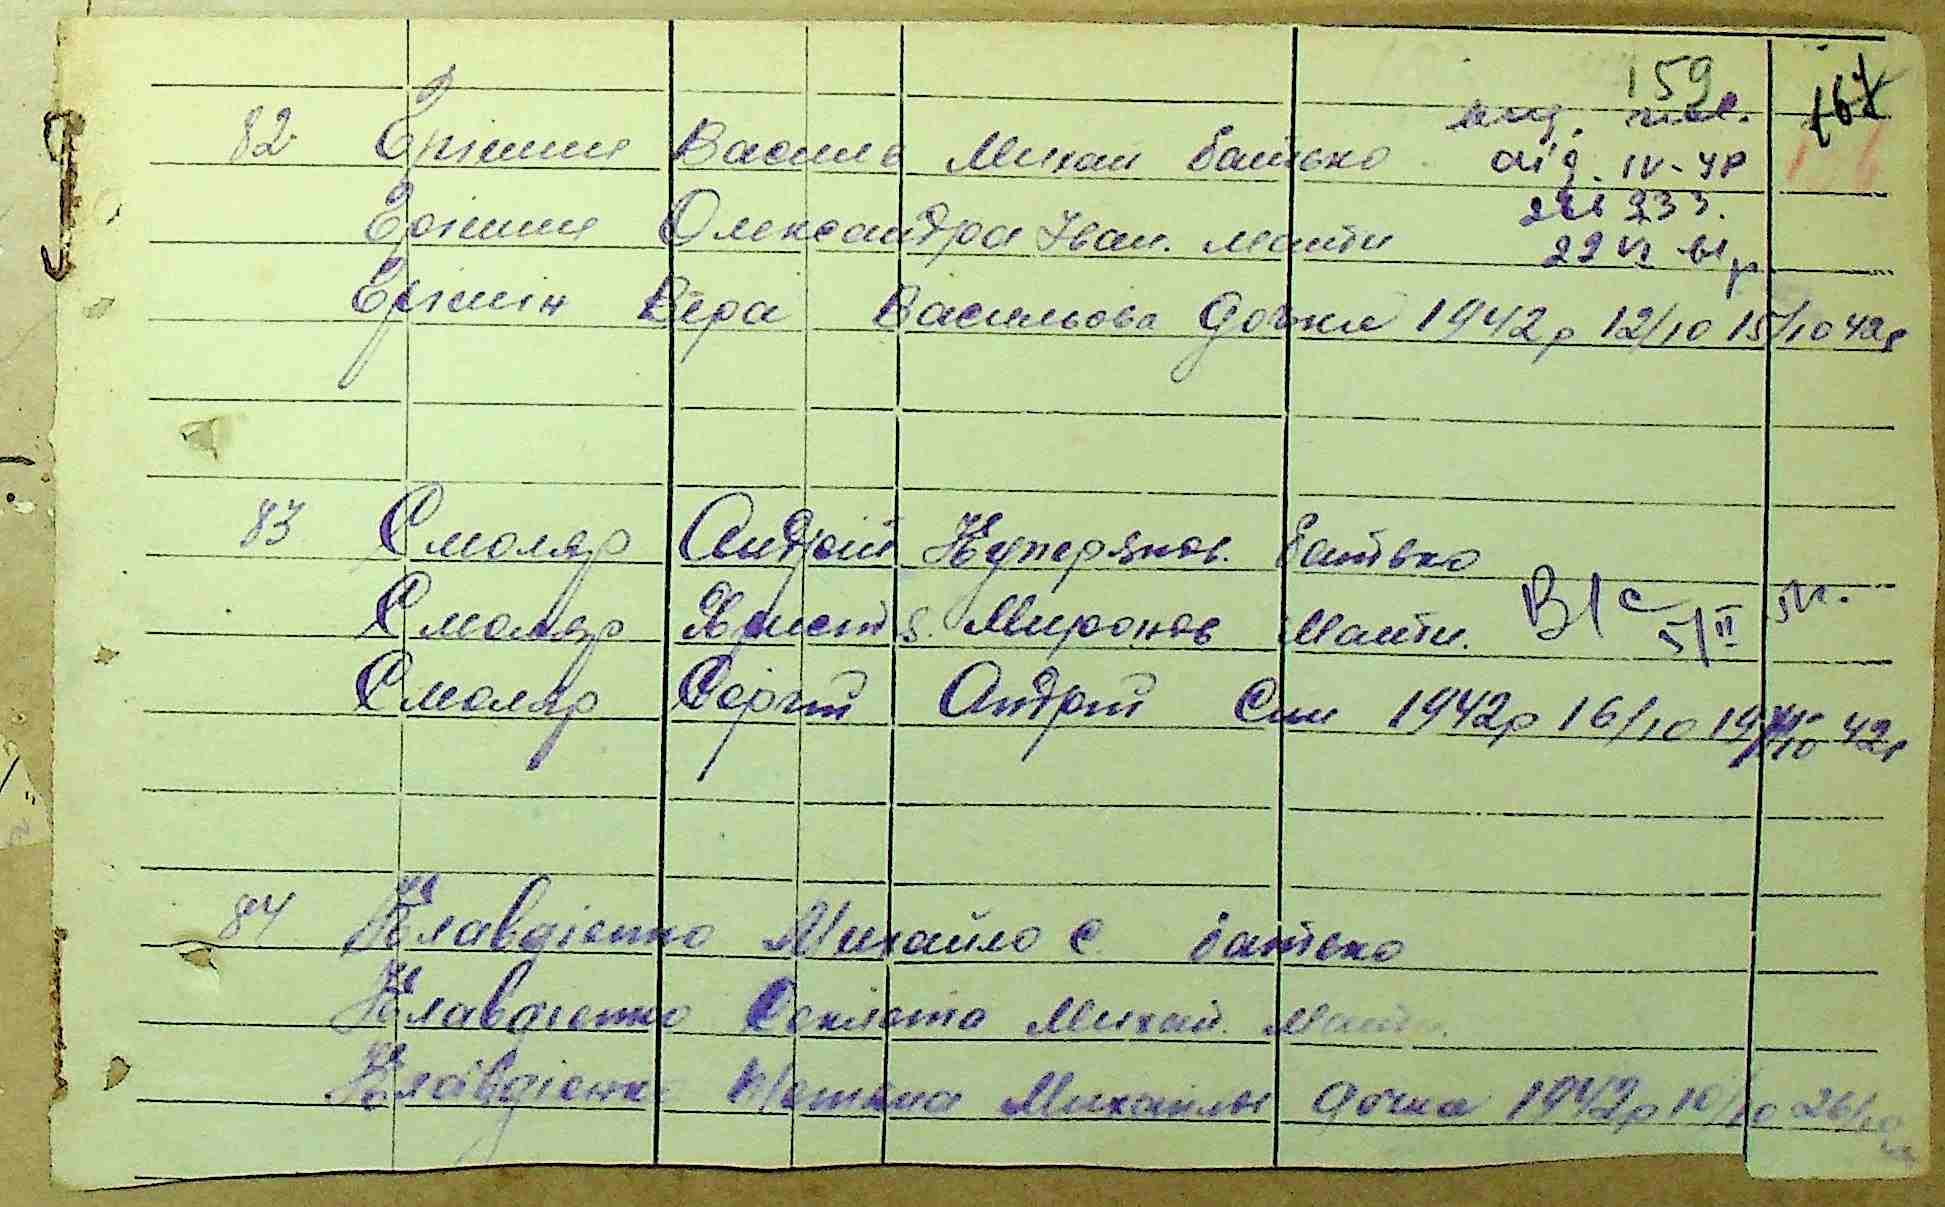 159
167
82 Єрішин Василь Михай батько
від. IV-48
Єрішин Олександра Іван. мати
233.
22 VI
Єрішин Вера Васильова дочка 1942р 12/10 15/10 42р
83 Смоляр Андрій Купержнов. батько
Смоляр Христя. Миронов мати. В/с 5/II 51.
Смоляр Сергій Андрій Син 1942р 16/10 19/10 42р
84 Клавдієнко Михайло С. батько
Клавдієнко Михай. мати
Клавдієнко Михайлів дочка 1942р 10/10 26/10